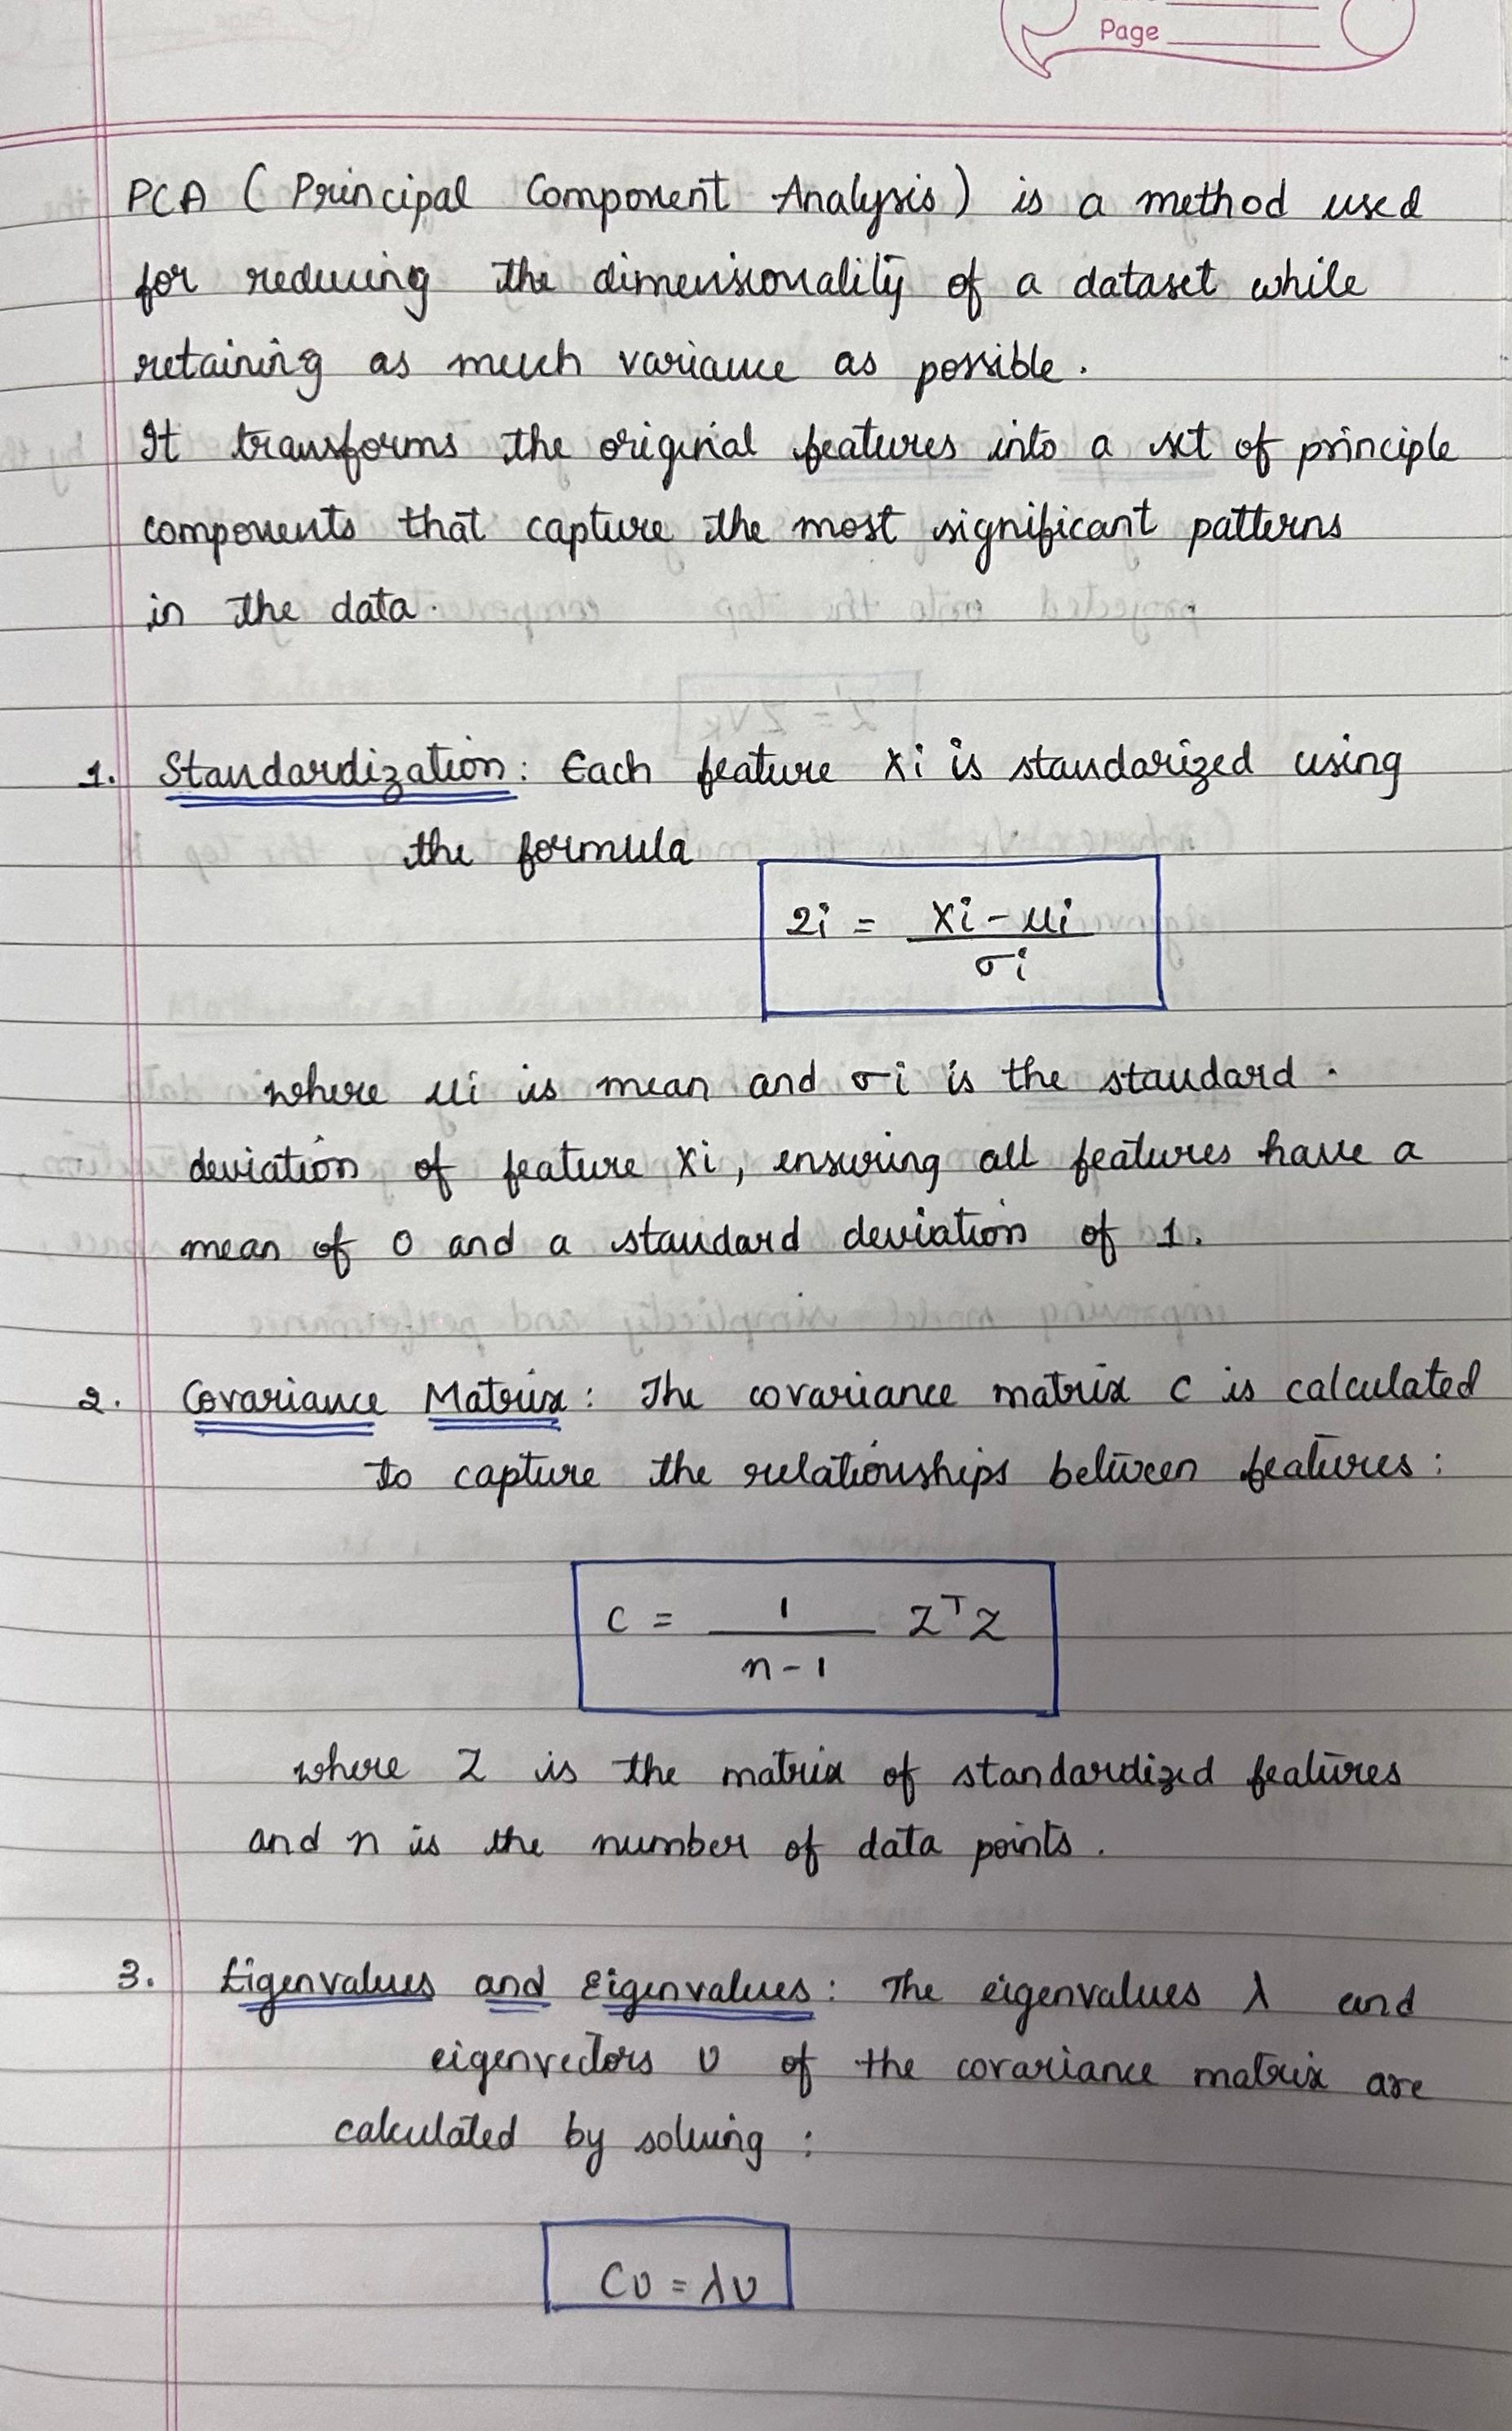 Page
PCA ( Principal Component Analysis ) is a method used
for reducing the dimensionality of a dataset while
retaining as much variance as possible.
It transforms the original features into a set of principle
components that capture the most significant patterns
in the data.
1. Standardization : Each feature Xi is standarized using
the formula
Zi = Xi - μi / σi
where μi is mean and σi is the standard .
deviation of feature Xi, ensuring all features have a
mean of 0 and a standard deviation of 1.
2. Covariance Matrix : The covariance matrix C is calculated
to capture the relationships between features :
C = 1 / n-1 ZᵀZ
where Z is the matrix of standardized features
and n is the number of data points .
3. Eigenvalues and Eigenvalues : The eigenvalues λ and
eigenvectors υ of the covariance matrix are
calculated by solving :
Cυ = λυ